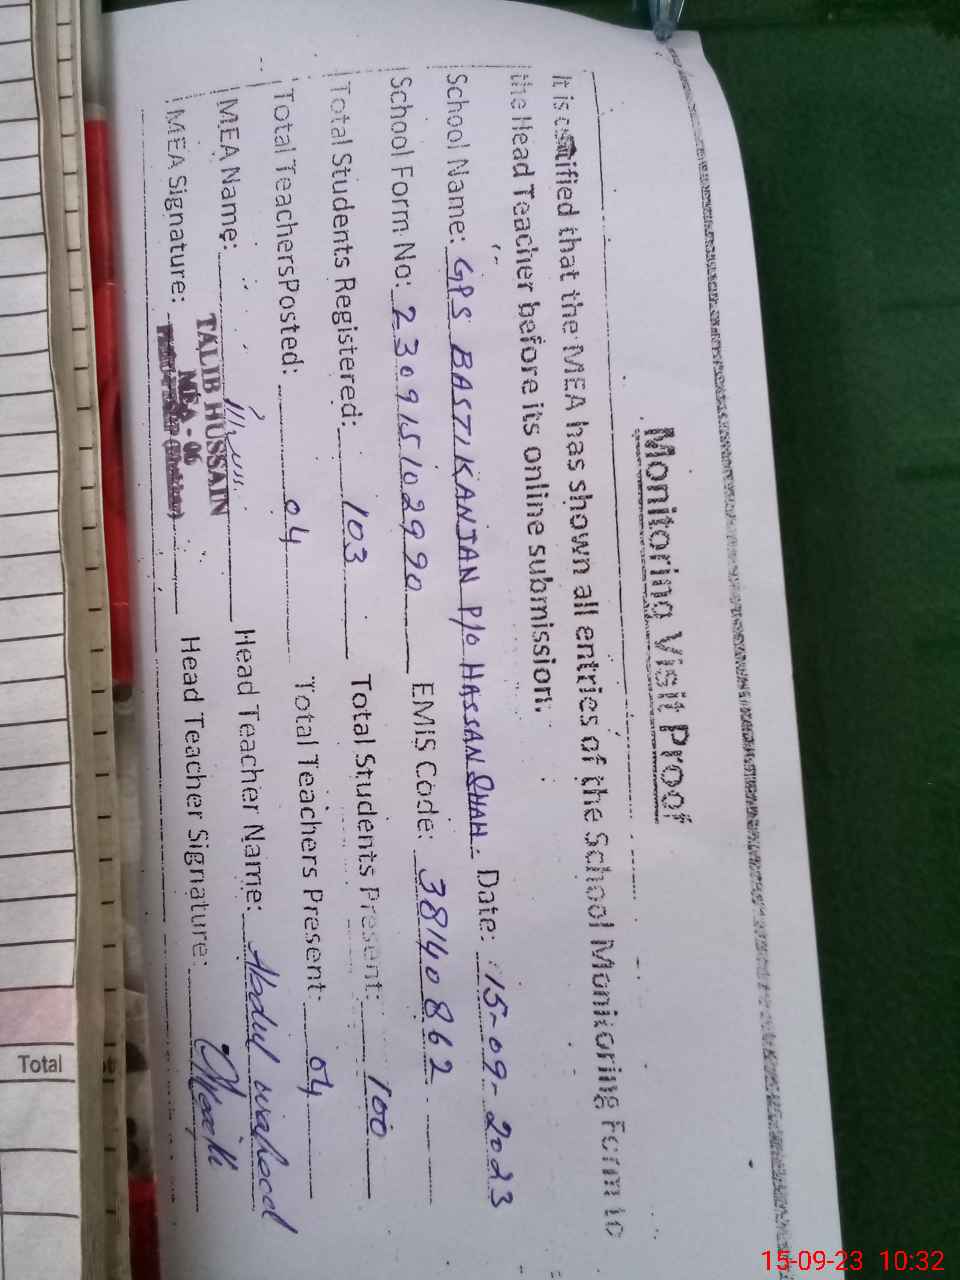 Monitoring Visit Proof
It is certified that the MEA has shown all entries of the School Monitoring Form to
the Head Teacher before its online submission.
School Name: GPS BASTI KANJAN P/o HASSAN SHAH. Date: 15-09-2023
School Form No: 2309151029 90 EMIS Code: 38140862
Total Students Registered: 103 Total Students Present: 100
Total Teachers Posted: 04 Total Teachers Present: 04
MEA Name: TALIB HUSSAIN Head Teacher Name: Abdul waheed
MEA - 06
MEA Signature: Head Teacher Signature:
Total
15-09-23 10:32